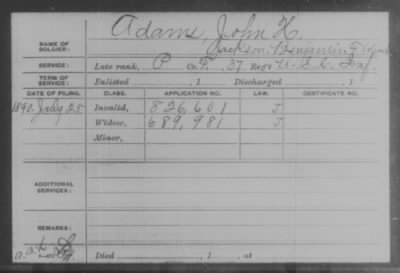 Adams, John H.
NAME OF SOLDIER:
Jackson, Benjamin
SERVICE: Late rank, P Co. F, 37 Reg't U.S.C. Inf
TERM OF SERVICE: Enlisted , 1 Discharged , 1
DATE OF FILING. CLASS. APPLICATION NO. LAW. CERTIFICATE NO.
1890. July 25. Invalid, 826,601 J.
Widow, 689,981 J
Minor,
ADDITIONAL SERVICES:
REMARKS:
Died , 1 , at